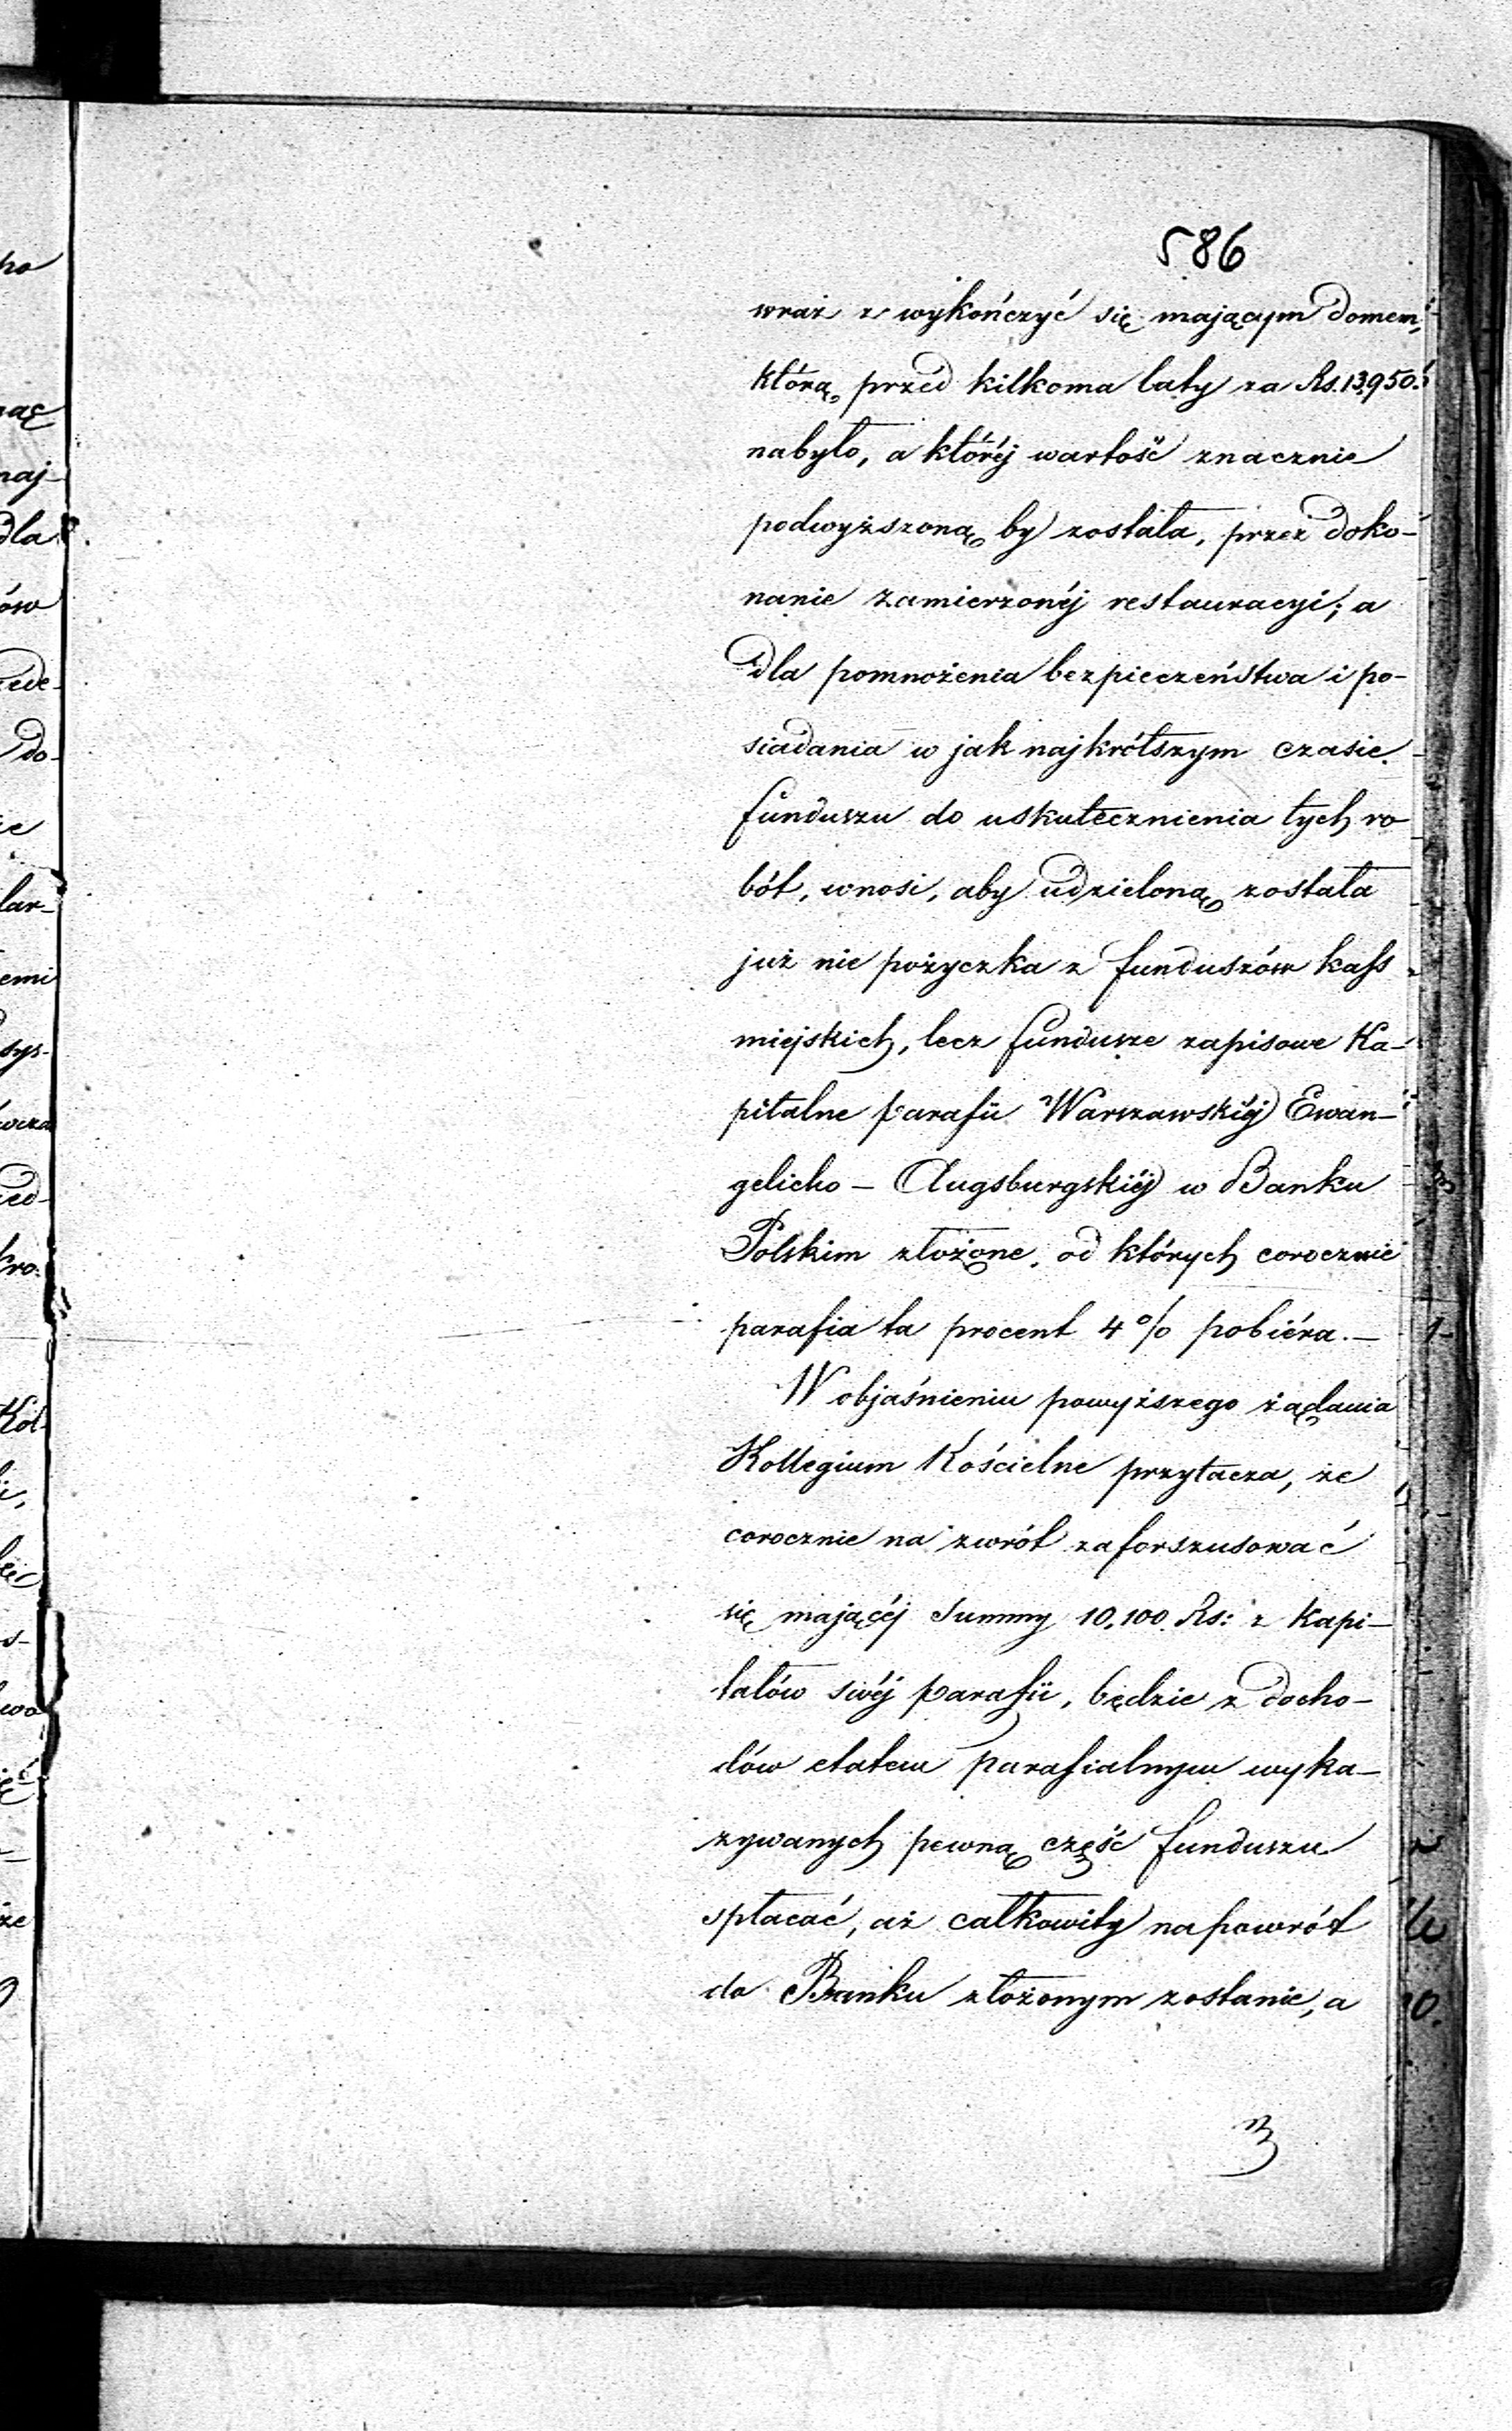 586
wraz z wykończyć się mającym domem,
którą przed kilkoma laty za Rs. 13,950.
nabyto, a któréj wartość znacznie
podwyższoną by została, przez doko-
nanie zamierzonéj restauracyi; a
dla pomnożenia bezpieczeństwa i po-
siadania w jak najkrótszym czasie
funduszu do uskutecznienia tych ro
bót, wnosi, aby udzieloną została
już nie pożyczka z funduszów kass
miejskich, lecz fundusze zapisowe Ka-
pitalne parafii Warszawskiéj Ewan-
gelicko - Augsburgskiéj w Banku
Polskim złożone, od których corocznie
parafia ta procent 4% pobiéra. —
W objaśnieniu powyższego żądania
Kollegium Kościelne przytacza, że
corocznie na zwrót zaforszusować
się mającéj Summy 10,100 Rs: z Kapi-
tałów swéj parafii, będzie z docho-
dów etatem parafialnym wyka-
zywanych pewną część funduszu
spłacać, aż całkowity napowrót
do Banku złożonym zostanie, a